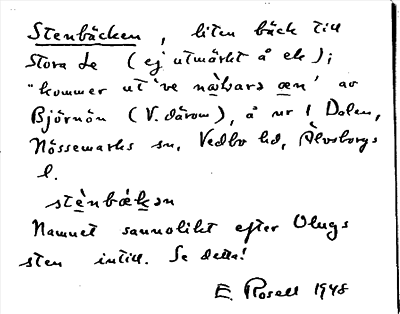 Stenbäcken, liten bäck till
Stora Le (ej utmärkt å ek);
"kommer ut ve nä̀rars æn' av
Björnön (V. därom), å nr 1 Dalen,
Nössemarks sn, Vedbo hd, Älvsborgs
l.
stènbækən
Namnet sannolikt efter Olugs
sten intill. Se detta!
E. Rosell 1948